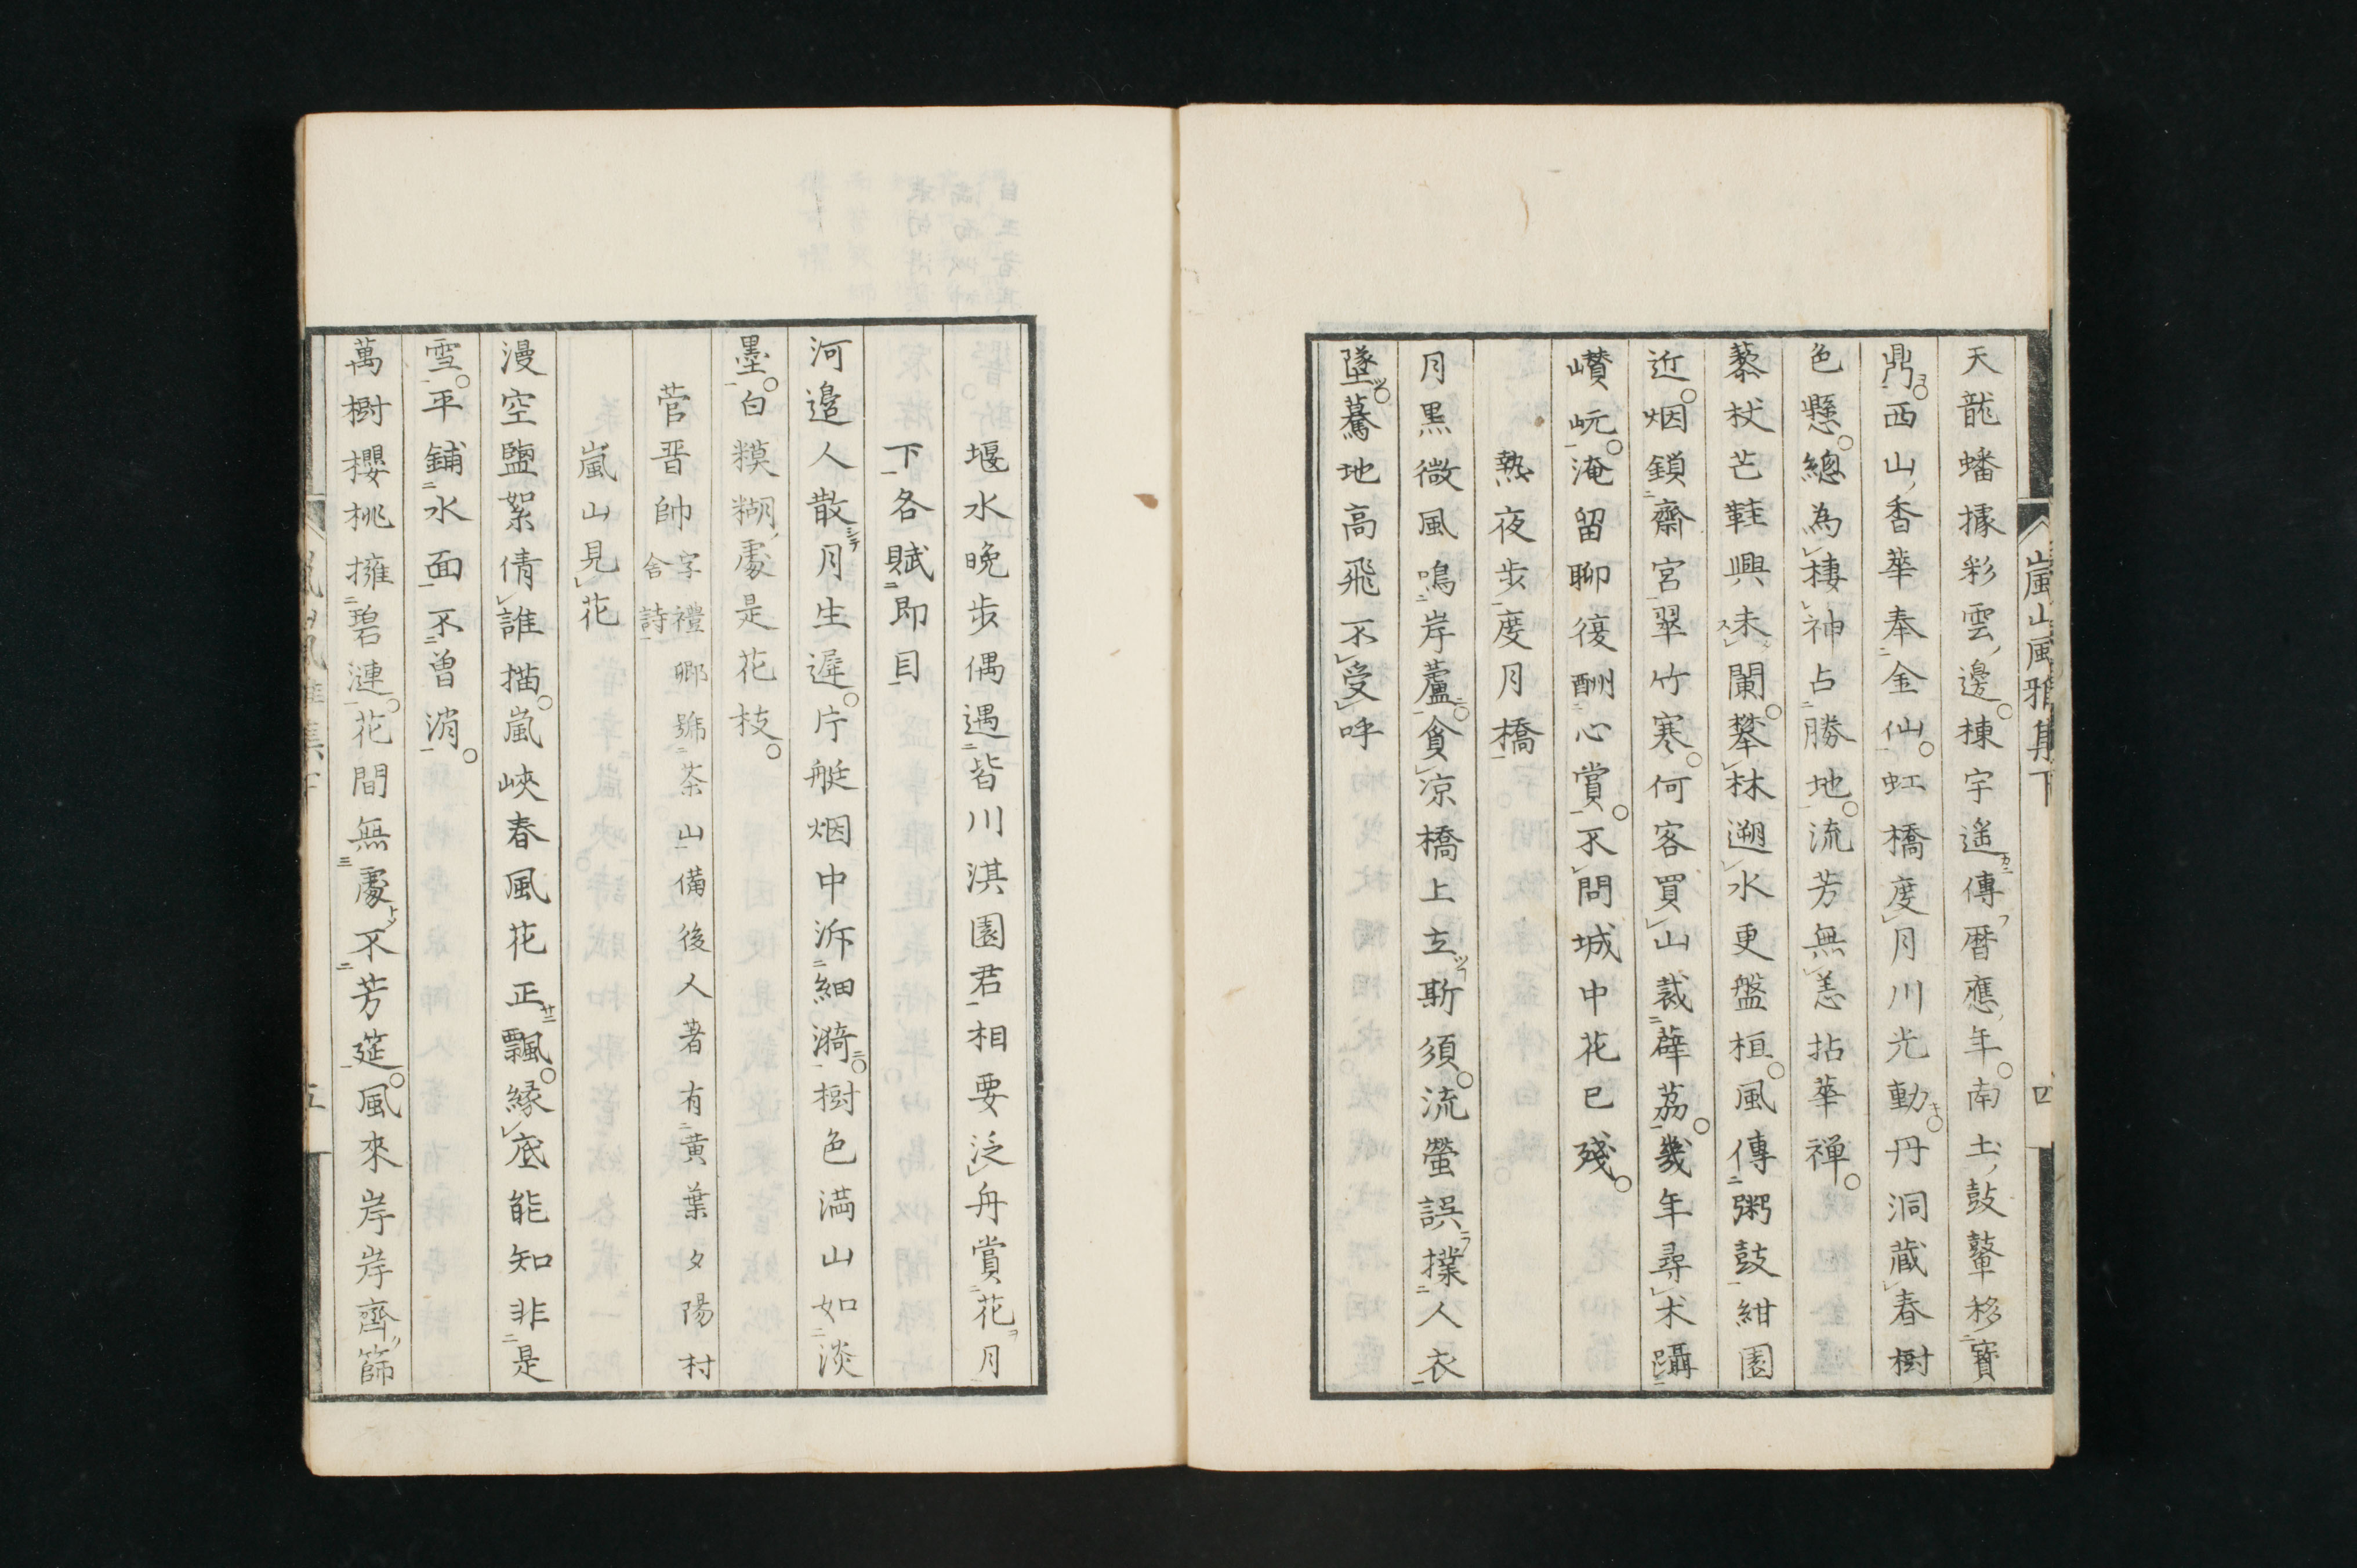 嵐山風雅集下
四
天龍蟠據彩雲邊。棟宇遙傳曆應年。南土鼓鼙移寶
鼎。西山香華奉金仙。虹橋度月川光動。丹洞蔵春樹
色懸。總為棲神占勝地。流芳無恙拈華禅。
藜杖芒鞋興未闌。攀林遡水更盤桓。風傳粥鼓紺園
近。烟鎖齋宮翠竹寒。何客買山裁薜荔。幾年尋朮躡
巑岏。淹留聊復酬心賞。不問城中花已殘。
熱夜步度月橋
月黒微風鳴岸蘆。貪凉橋上立斯須。流螢誤撲人衣
墜。驀地高飛不受呼
堰水晩步偶遇皆川淇園君相要泛舟賞花月
下各賦即目
河邉人散月生遅。片艇烟中泝細漪。樹色満山如淡
墨。白糢糊處是花枝。
菅晋帥字禮卿號茶山備後人著有黄葉夕陽村
舎詩
嵐山見花
漫空鹽絮倩誰描。嵐峽春風花正飄。縁底能知非是
雪。平鋪水面不曽消。
萬樹櫻桃擁碧漣。花間無處不芳筵。風來岸岸齊篩